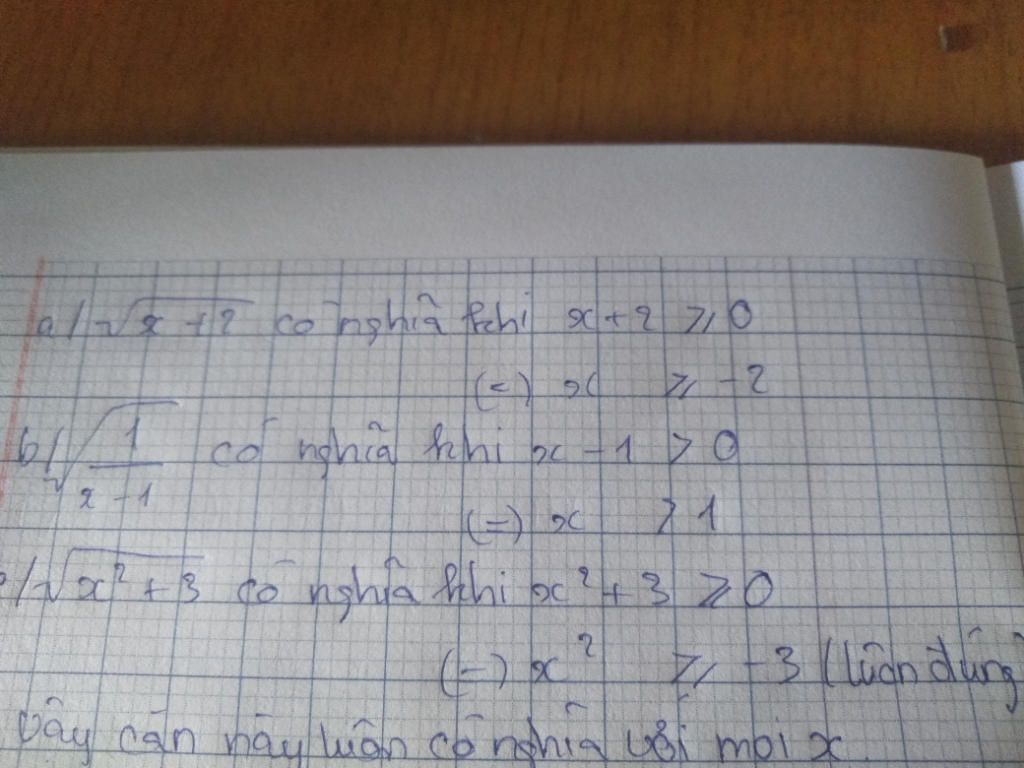 a/ √(x+2) có nghĩa khi x+2 ⩾ 0
(=) x ⩾ -2
b/ √(1/(x-1)) có nghĩa khi x-1 > 0
(=) x > 1
c/ √(x²+3) có nghĩa khi x²+3 ⩾ 0
(=) x² ⩾ -3 (luôn đúng)
vậy căn này luôn có nghĩa với mọi x